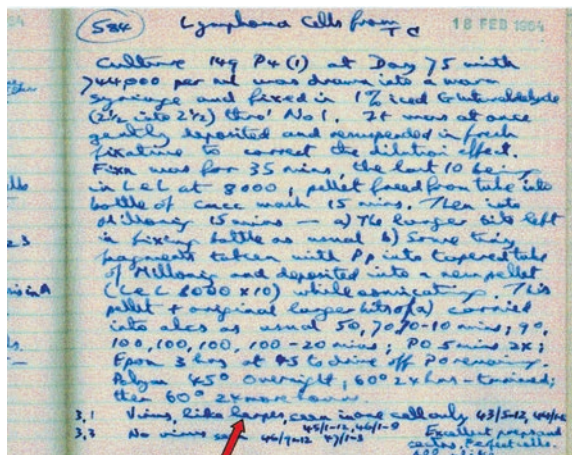 584 Lymphoma Cells from T C 18 FEB 1964
Culture 149 P4 (1) at Day 75 with
>444,000 per ml was drawn into a warm
syringe and fixed in 1% iced Glutaraldehyde
(2½ into 2½) thro' No 1. It was at once
gently deposited and resuspended in fresh
fixative to correct the dilution effect.
Fixn was for 35 mins, the last 10 being
in LeL at 8000, pellet freed from tube into
bottle of cacc wash 15 mins. Then into
Millonig 15 mins — a) The larger bits left
in fixing bottle as usual b) Some tiny
fragments taken with Pp into tapered tube
of Millonig and deposited into a new pellet
(LeL 8000 x 10) while osmicating. This
pellet + original larger bits of a) carried
into alcs as usual 50, 70, 70-10 mins; 90,
100, 100, 100, 100-20 mins; PO 5 mins 2x;
Epon 3 hrs at 45 to drive off PO remaining.
45° overnight, 60° 24 hrs - trained;
then 60° 24 more hours.
3,1 Virus, like herpes, seen in one cell only 43/5-12,
45/1-12, 46/1-8
3,3 No virus seen 46/9-12 47/1-3 Excellent preps and